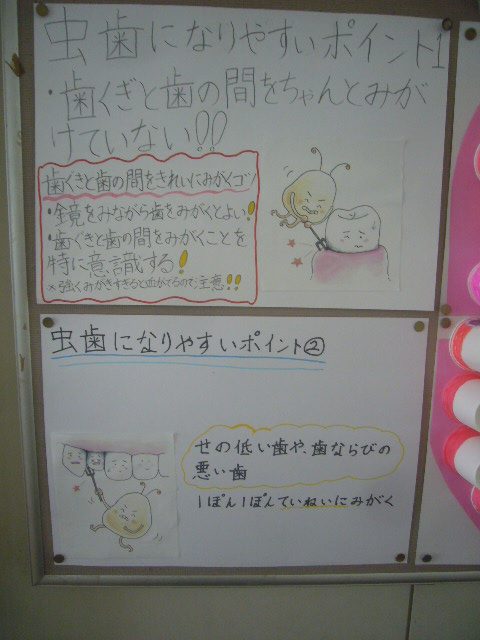 虫歯になりやすいポイント1
・歯ぐきと歯の間をちゃんとみが
けていない!!
歯ぐきと歯の間をきれいにみがくコツ
・鏡をみながら歯をみがくとよい!
・歯ぐきと歯の間をみがくことを
特に意識する!
※強くみがきすぎると血がでるので注意!!
虫歯になりやすいポイント②
せの低い歯や、歯ならびの
悪い歯
1ぽん1ぽんていねいにみがく